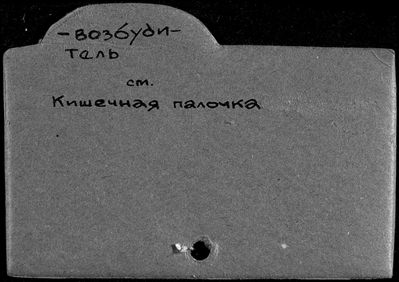 -возбуди-
тель
см.
Кишечная палочка